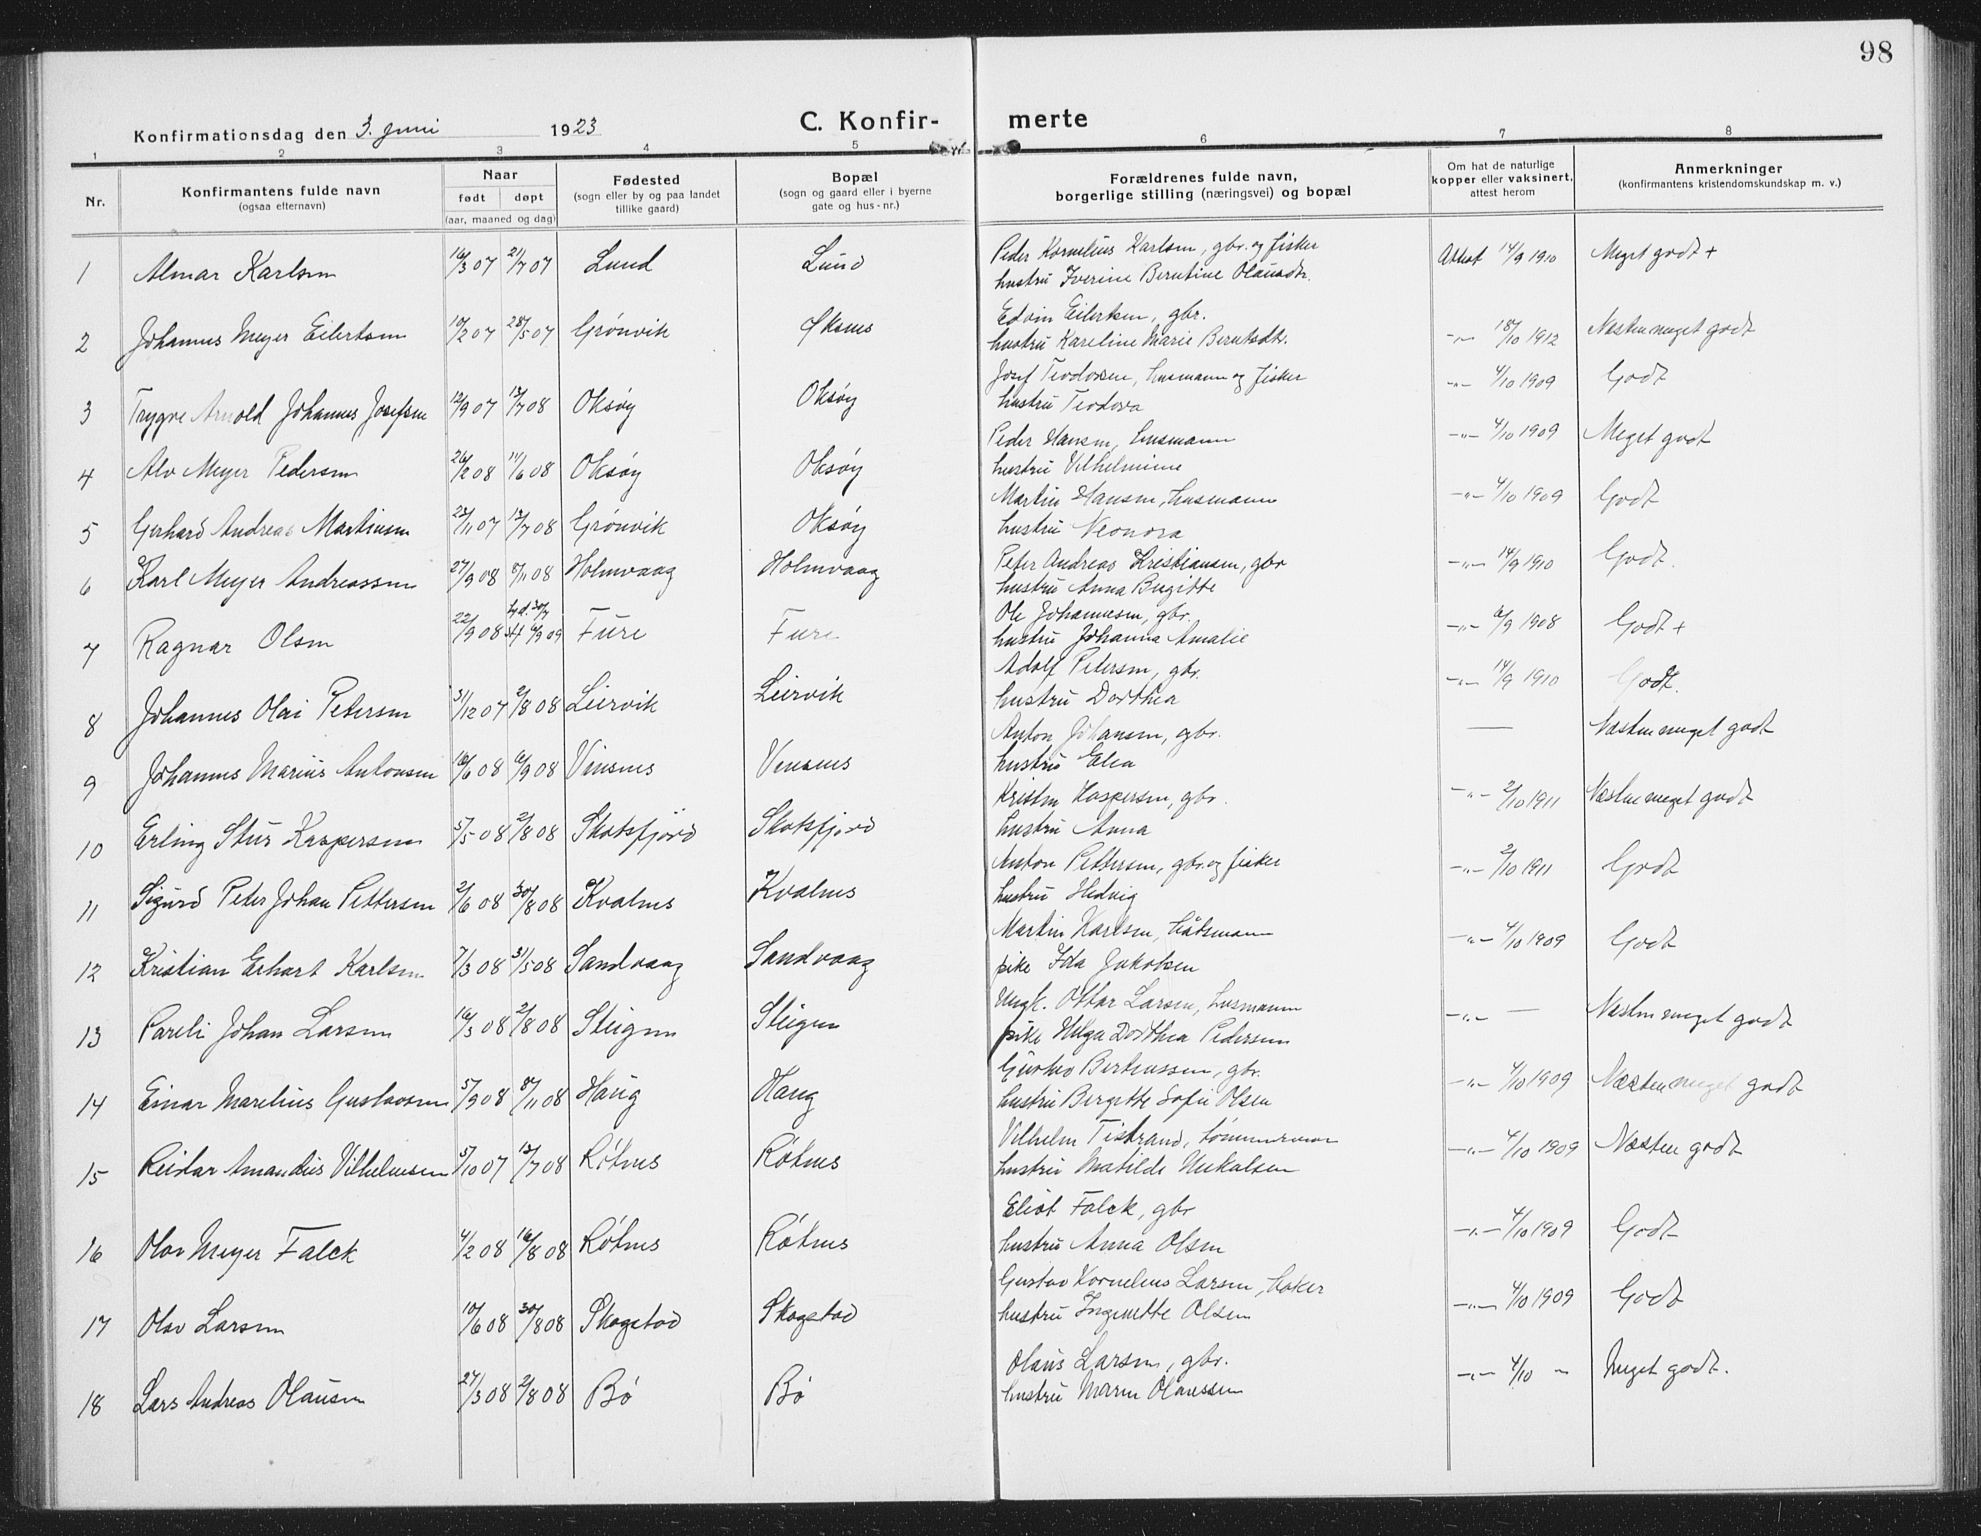 98
Konfirmationsdag den 3. juni 1923 C. Konfir- merte
1 2 3 4 5 6 7 8
Nr. Konfirmantens fulde navn (ogsaa efternavn) Naar født døpt (aar, maaned og dag) Fødested (sogn eller by og paa landet tillike gaard) Bopæl (sogn og gaard eller i byerne gate og hus-nr.) Forældrenes fulde navn, borgerlige stilling (næringsvei) og bopæl Om hat de naturlige kopper eller vaksinert, attest herom Anmerkninger (konfirmantens kristendomskundskap m. v.)
1 Almar Karlsen 16/3 07 21/7 07 Lund Lund Peder Kornelius Karlsen, gbr. og fisker Attest 14/9 1910 Meget godt +
hustru Iverine Berntine Olausdr.
2 Johannes Meyer Eilertsen 10/2 07 28/5 07 Grönvik Öksnes Edvin Eilertsen, gbr. -"- 18/10 1912 Næsten meget godt
hustru Kareline Marie Berntsdtr.
3 Trygve Arnold Johannes Josefsen 12/9 07 12/7 08 Oksöy Oksöy Josef Teodorsen, husmann og fisker -"- 4/10 1909 Godt
hustru Teodora
4 Alv Meyer Pedersen 26/2 08 11/6 08 Oksöy Oksöy Peder Hansen, husmann -"- 4/10 1909 Meget godt
hustru Vilhelmine
5 Gerhard Andreas Martinsen 23/11 07 12/7 08 Grönvik Oksöy Martin Hansen, husmann -"- 4/10 1909 Godt
hustru Neonora
6 Karl Meyer Andreassen 27/9 08 8/11 08 Holmvaag Holmvaag Peter Andreas Kristiansen, gbr -"- 14/9 1910 Godt.
hustru Anna Birgitte
7 Ragnar Olsen 22/9 08 Fure Fure Ole Johannesen, gbr. -"- 6/9 1908 Godt +
hustru Johanna Amalie
8 Johannes Olai Petersen 31/12 07 2/8 08 Leirvik Leirvik Adolf Petersen, gbr. -"- 14/9 1910 Godt.
hustru Dorthea
9 Johannes Marius Antonsen 16/6 08 6/9 08 Vinsnes Vinsnes Anton Johansen, gbr. — Næsten meget godt
hustru Elea
10 Erling Stur Kaspersen 5/5 08 2/8 08 Skotsfjord Skotsfjord Kristen Kaspersen, gbr. -"- 2/10 1911 Næsten meget godt
hustru Anna
11 Sigurd Peter Johan Pettersen 2/6 08 30/8 08 Kvalnes Kvalnes Anton Pettersen, gbr. og fisker -"- 2/10 1911 Godt
hustru Hedvig
12 Kristian Erhart Karlsen 7/3 08 31/5 08 Sandvaag Sandvaag Martin Karlsen, baatsmann -"- 4/10 1909 Godt
pike Ida Jakobsen
13 Pareli Johan Larsen 16/3 08 2/8 08 Steigen Steigen Ungk. Ottar Larsen, husmann -"- — Næsten meget godt
pike Helga Dorthea Pedersen
14 Einar Marelius Gustavsen 5/9 08 8/11 08 Haug Haug Gustav Berteussen, gbr. -"- 4/10 1909 Næsten meget godt
hustru Bergitte Sofie Olsen
15 Reidar Amandus Vilhelmsen 5/10 07 12/7 08 Rötnes Rötnes Vilhelm Tistrand, tømmerman -"- 4/10 1909 Næsten godt
hustru Matilde
16 Olav Meyer Falck 4/2 08 16/8 08 Rötnes Rötnes Eliot Falck, gbr -"- 4/10 1909 Godt
hustru Anna Olsen
17 Olav Larsen 10/6 08 30/8 08 Skagstad Skagstad Gustav Kornelius Larsen, baker -"- 4/10 1909 Godt
hustru Inginette Olsen
18 Lars Andreas Olausen 27/3 08 2/8 08 Bö Bö Olaus Larsen, gbr. -"- 4/10 - Meget godt.
hustru Maren Olaussen